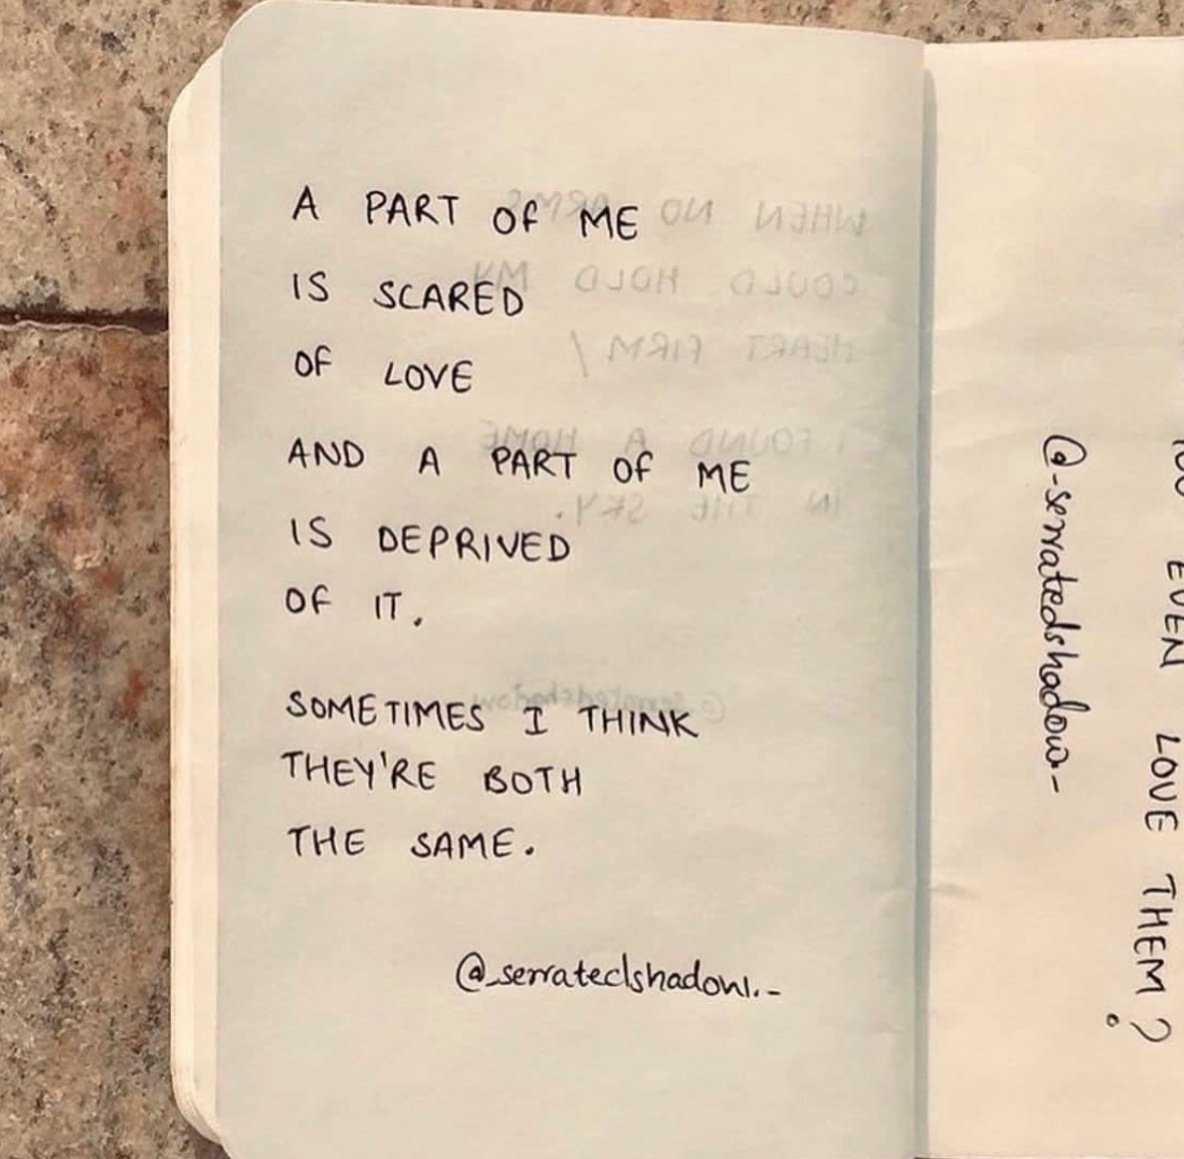 A PART OF ME
IS SCARED
OF LOVE
AND A PART OF ME
IS DEPRIVED
OF IT.
SOMETIMES I THINK
THEY'RE BOTH
THE SAME.
@_serratedshadow._
WHEN NO ARMS
COULD HOLD MY
HEART FIRM /
I FOUND A HOME
IN THE SKY.
@_serratedshadow._
EVEN LOVE THEM?
@_serratedshadow._